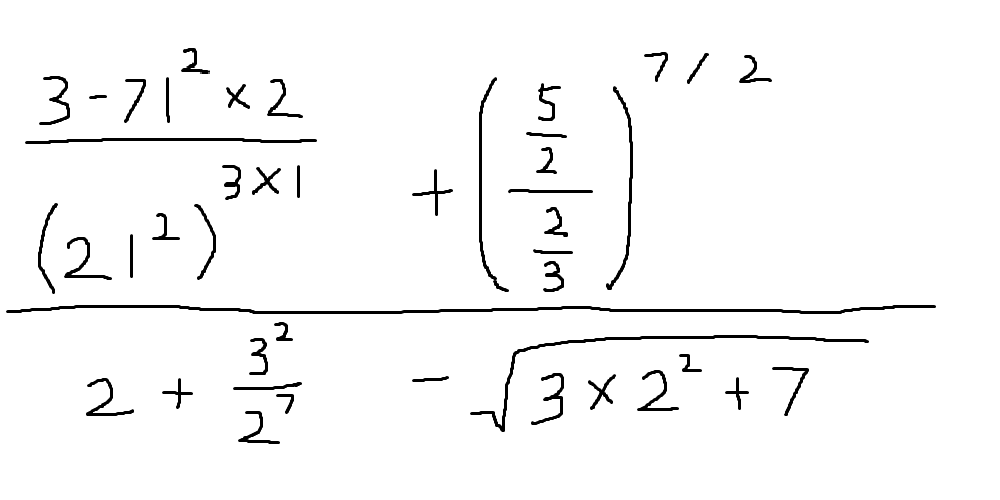 \frac{\frac{3-71^2 \times 2}{(21^2)^{3 \times 1}} + \left(\frac{\frac{5}{2}}{\frac{2}{3}}\right)^{7/2}}{2 + \frac{3^2}{2^7} - \sqrt{3 \times 2^2 + 7}}